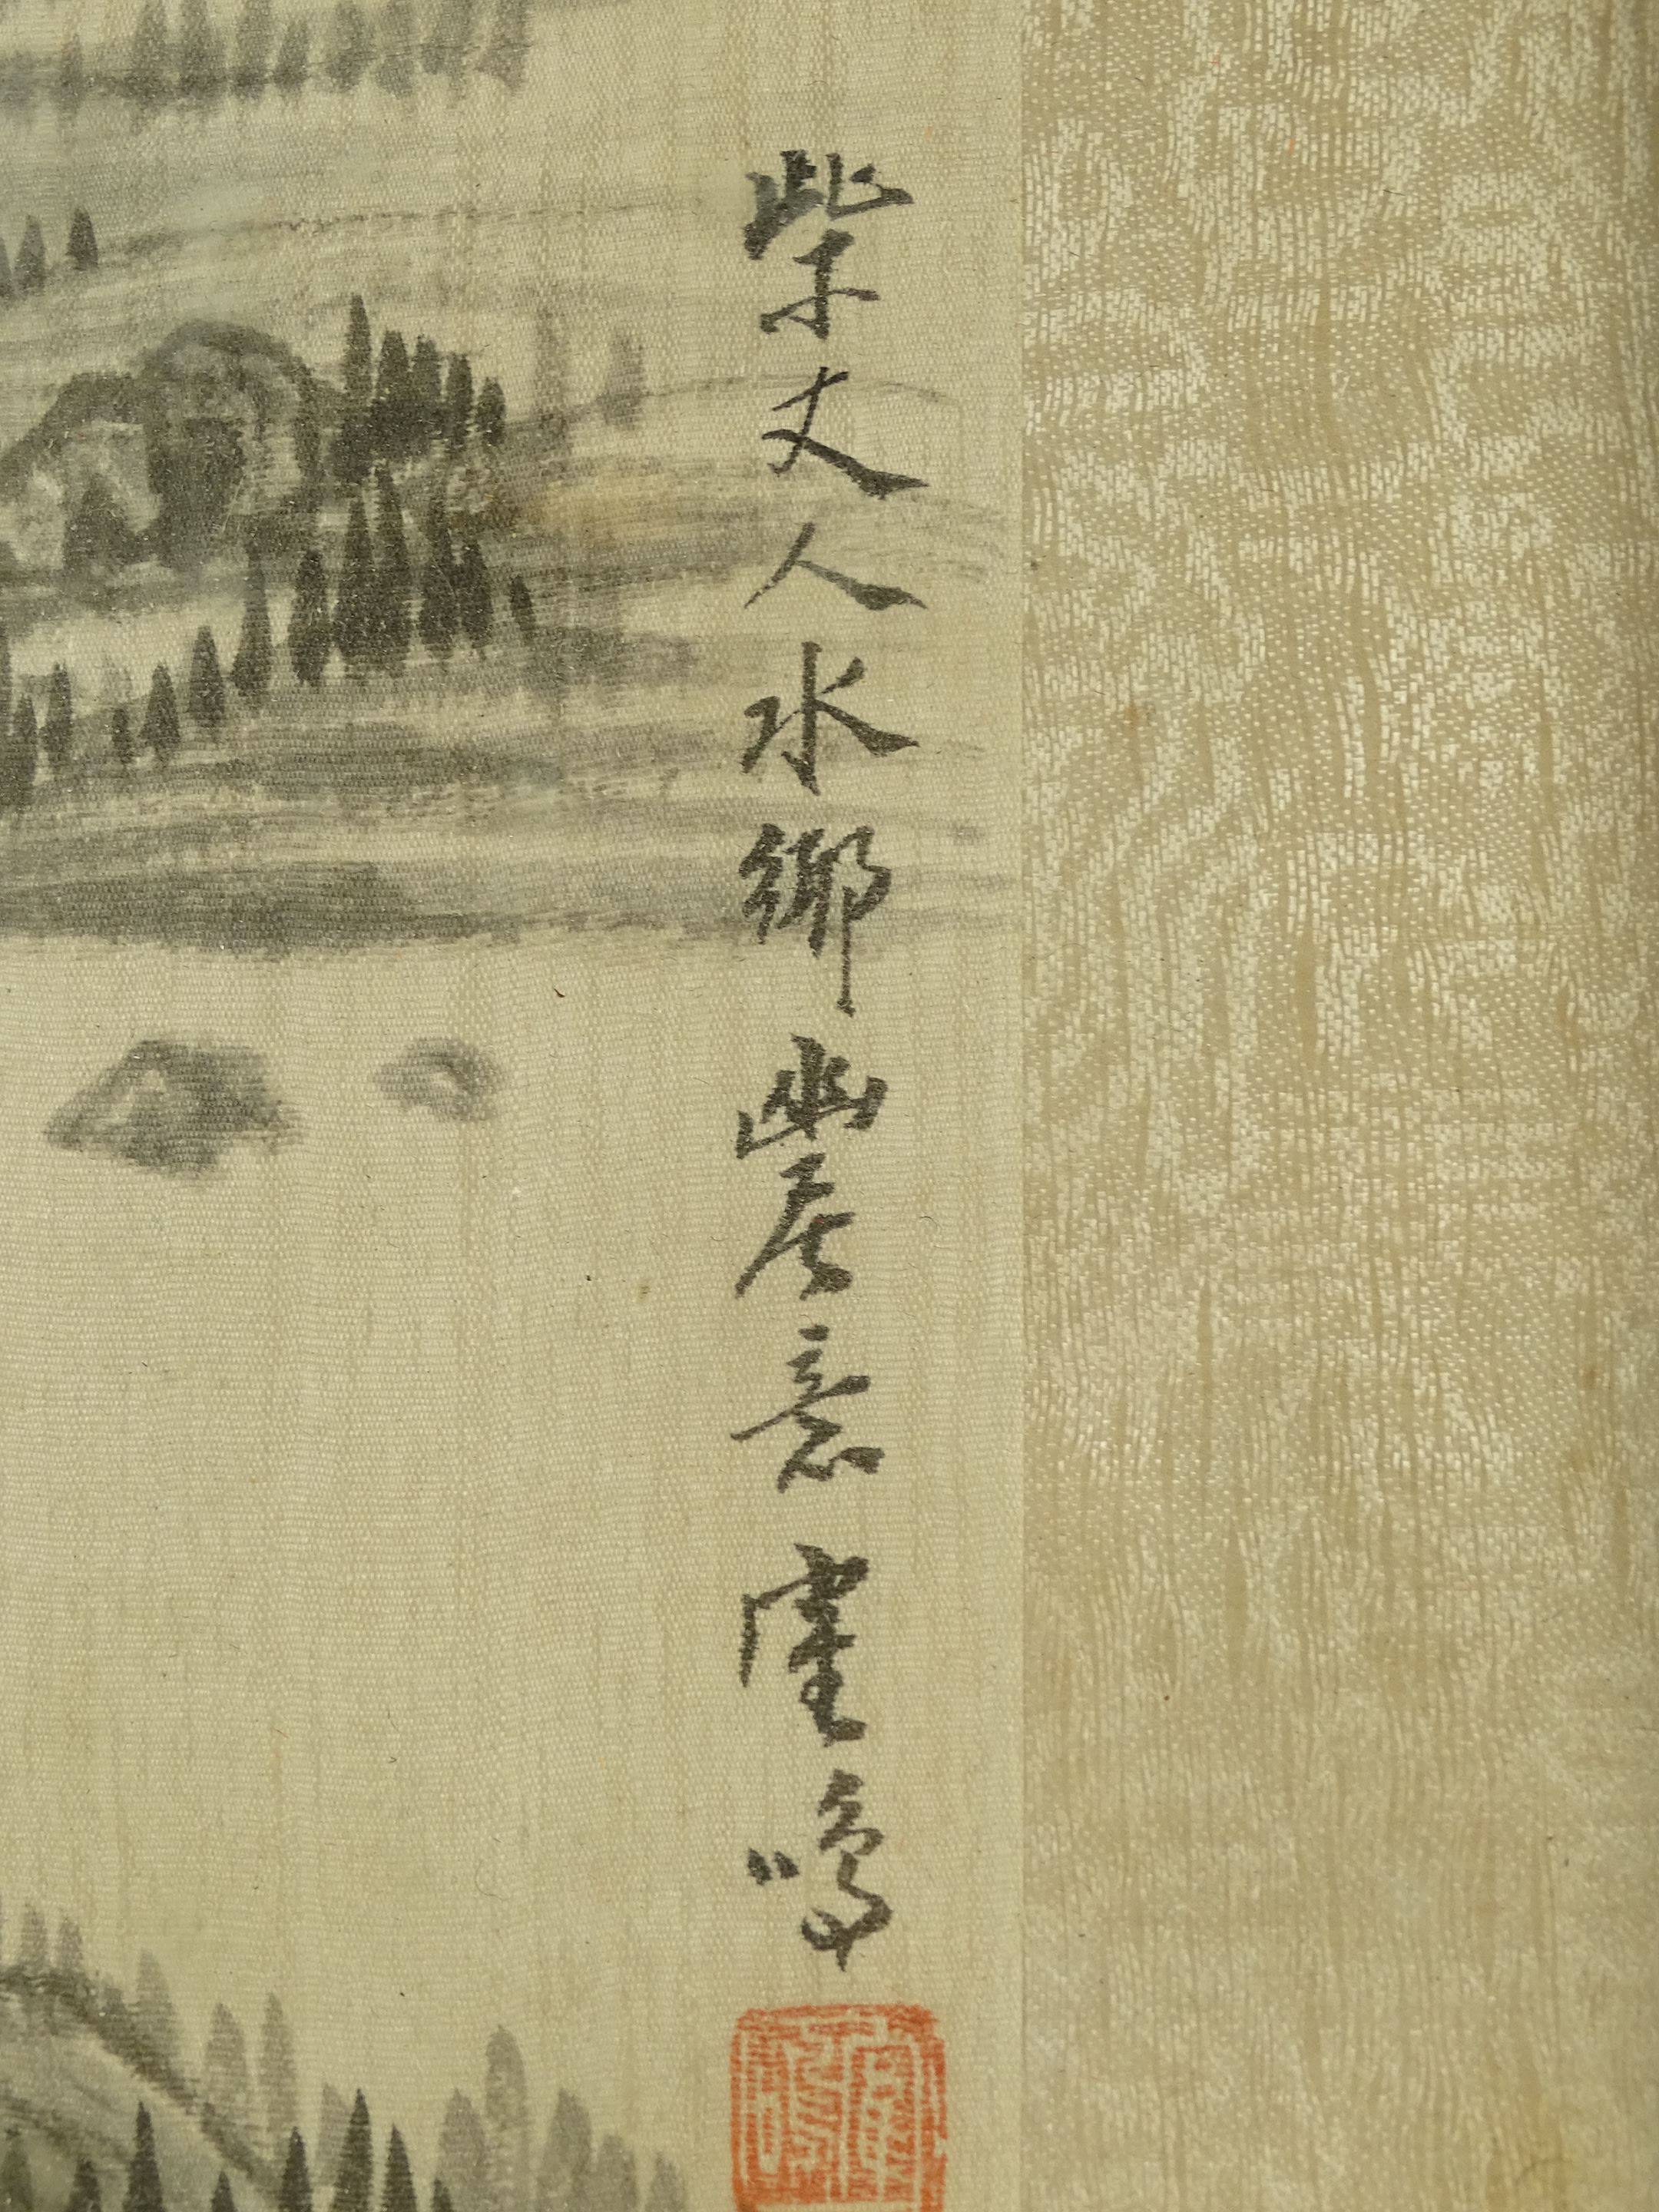 柴丈人水鄉幽居意 崔鳴